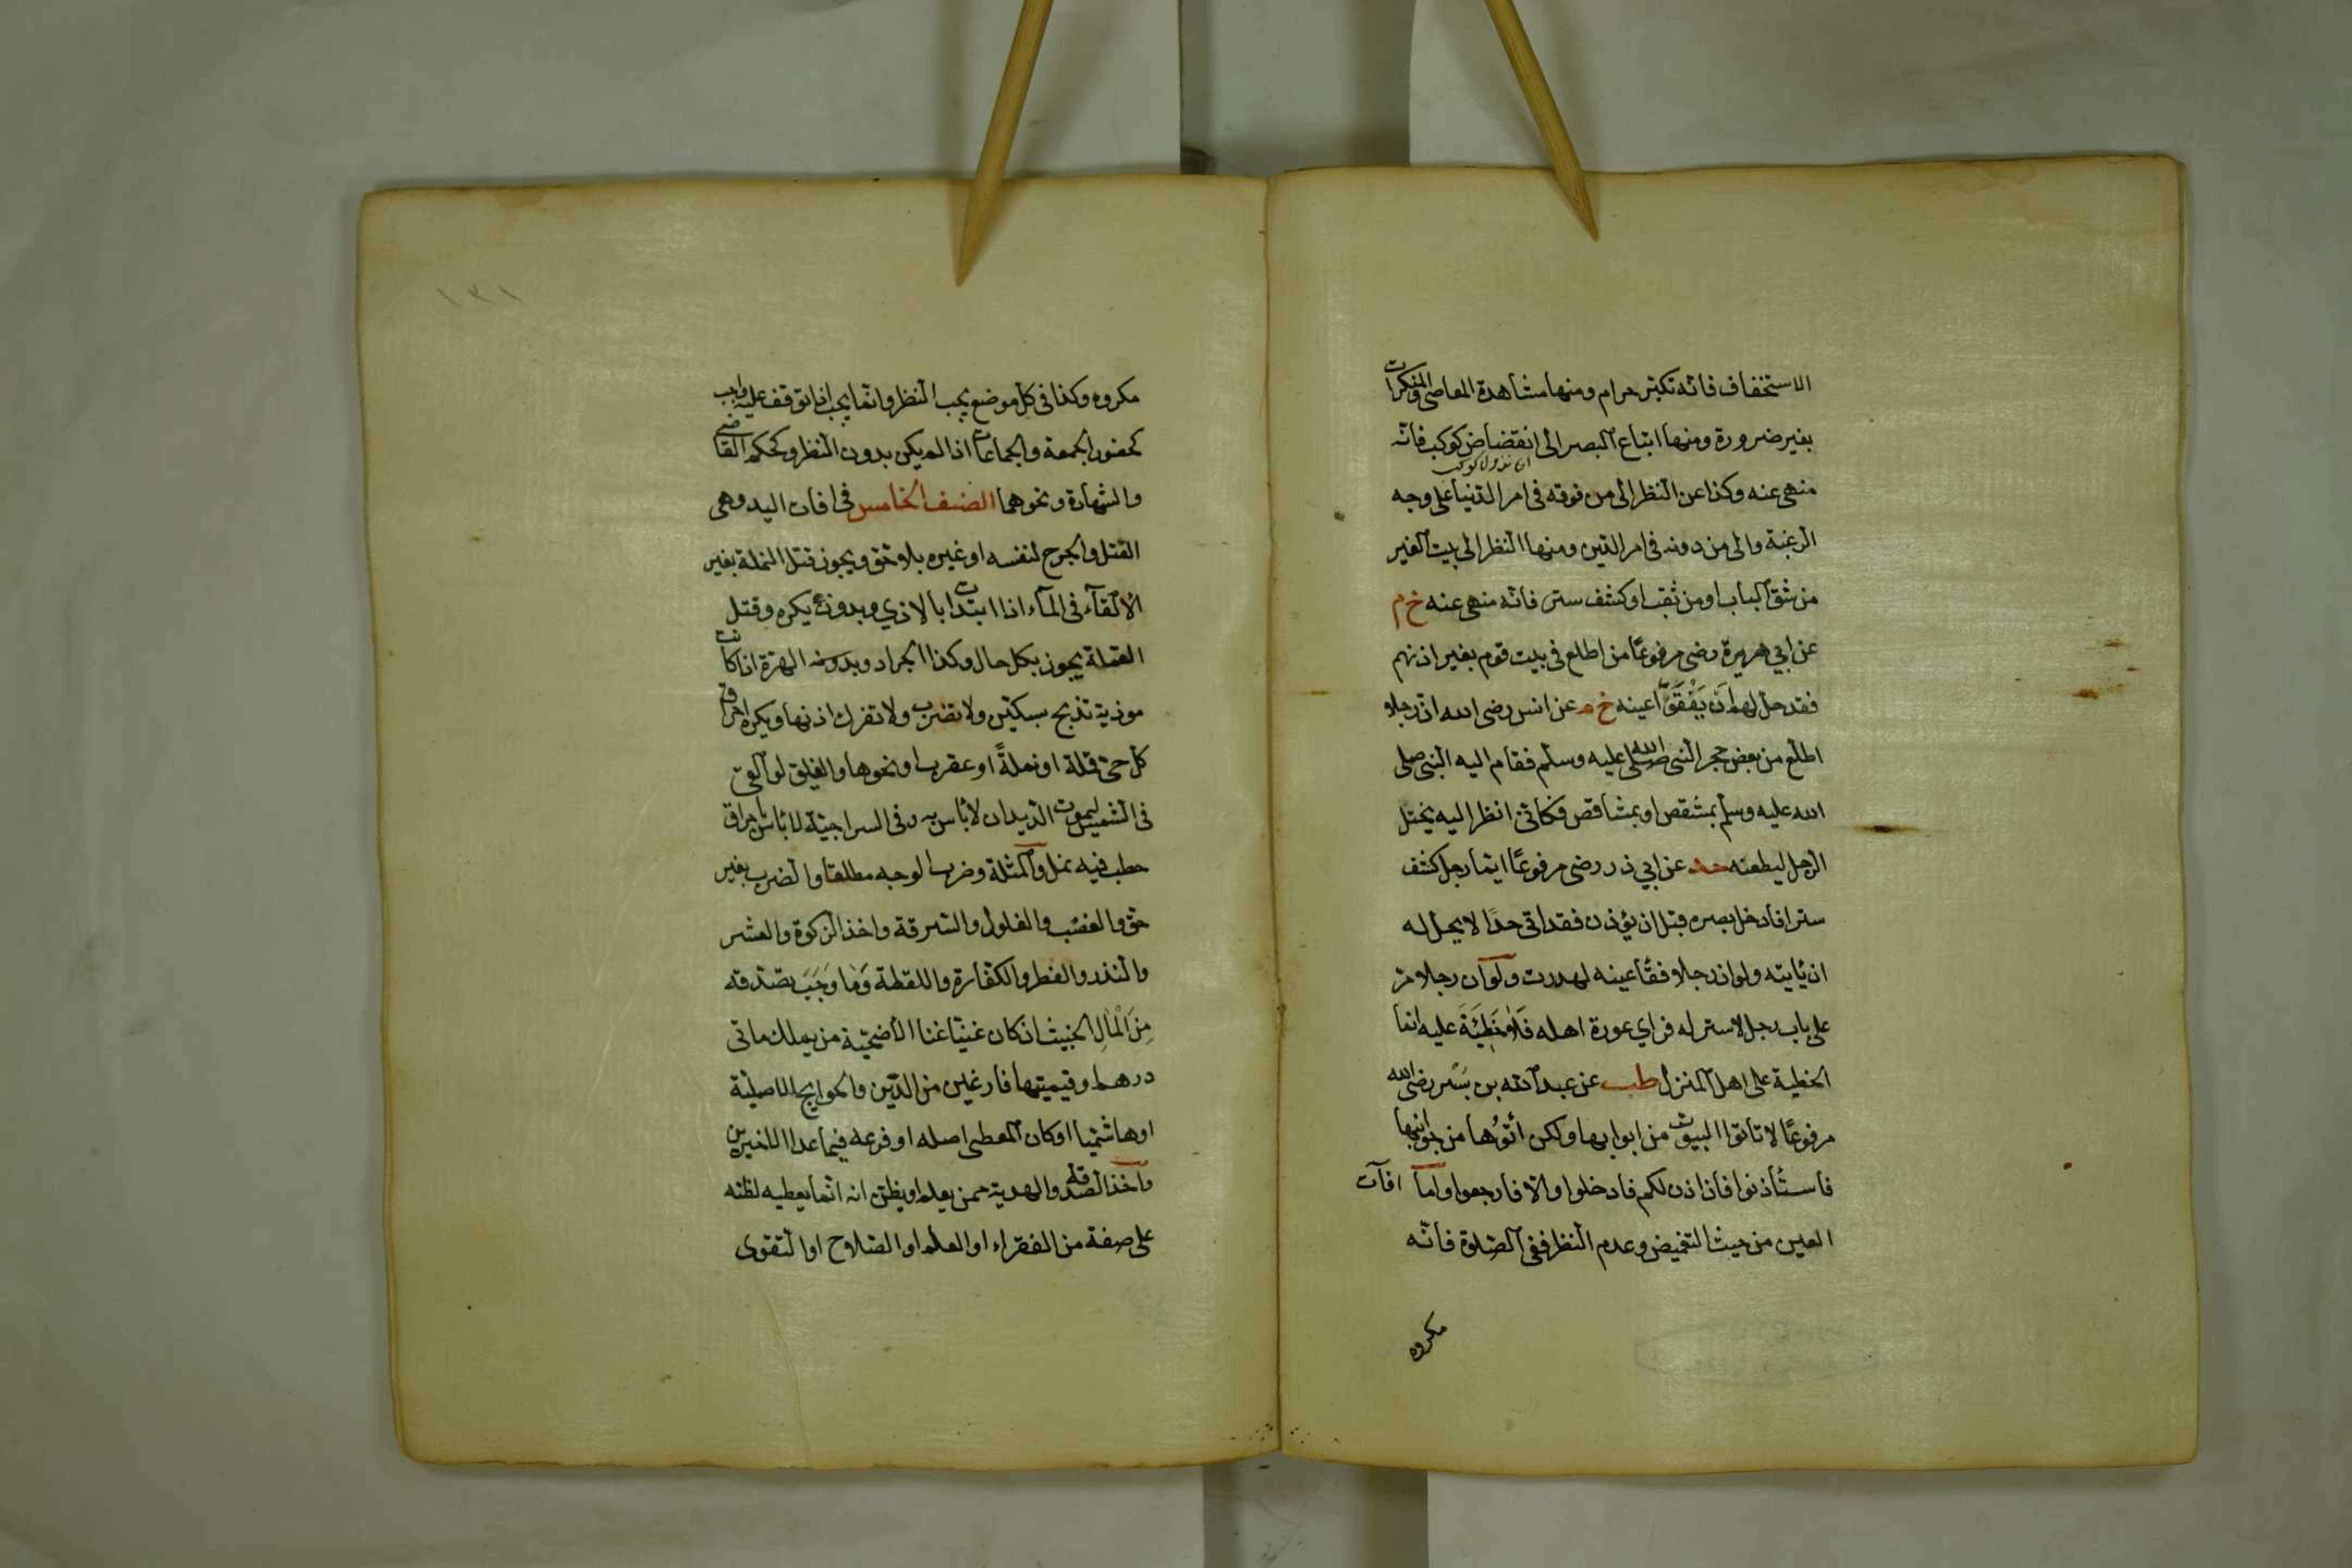 الاستخفاف فانه تكبر حرام ومنها مشاهدة المعاصى والمنكرات
بغير ضرورة ومنها اتباع البصر الى انقضاض كوكب فانه
اى نزول كوكب
منهى عنه وكذا عن النظر الى من فوقه فى امر الدنيا على وجه
الرغبة والى من دونه فى امر الدين ومنها النظر الى بيت الغير
من شق الباب او من ثقب او كشف ستر فانه منهى عنه خ م
عن ابي هريرة رضى مرفوعًا من اطلع فى بيت قوم بغير اذنهم
فقد حل لهم اَن يَفْقَؤُا عينه خ م عن انس رضى الله ان رجلا
اطلع من بعض حجر النبى صلى الله عليه وسلم فقام اليه النبى صلى
الله عليه وسلم بمشقص او بمشاقص فكانى انظر اليه يختل
الرجل ليطعنه حد عن ابي ذر رضى مرفوعًا ايما رجل كشف
سترا فادخل بصره قبل ان يؤذن فقد اتى حدًا لا يحل له
ان يأتيه ولو ان رجلا فقأ عينه لهدرت ولو ان رجلا مر
على باب رجل لا ستر له فراي عورة اهله فَلا خَطِيئَةَ عليه انما
الخطية على اهل المنزل طب عن عبد الله بن بسر رضى الله
مرفوعًا لا تاتوا البيوت من ابوابها ولكن ائتُوها من جوانبها
فاستأذنوا فان اذن لكم فادخلوا والا فارجعوا واما افآت
العين من حيث التغميض وعدم النظر ففى الصلوة فانه
مكروه
١٣١
مكروه وكذا فى كل موضع يجب النظر وانما يجب اذا توقف عليه واجب
كحضور الجمعة والجماعات اذا لم يكن بدون النظر وكحكم القاضى
والشهادة ونحوهما الصنف الخامس فى افات اليد وهى
القتل والجرح لنفسه او غيره بلا حق ويجوز قتل النملة بغير
الالقآء فى المآء اذا ابتدات بالاذي وبدونه يكره وقتل
القملة يجوز بكل حال وكذا الجراد وبدونه الهرة اذا كانت
موذية تذبح بسكين ولا تضرب ولا تفرك اذنها ويكره احراق
كل حى قملة او نملةً او عقرب او نحوها والفليق لو القى
فى الشمس ليموت الديدان لا بأس به وفى السراجية لا بأس باحراق
حطب فيه نمل والمثلة وضرب الوجه مطلقا والضرب بغير
حق والغصب والغلول والسرقة واخذ الزكوة والعشر
والنذر والفطر والكفارة واللقطة وَمٰا وَجَبَ تصدقه
مِنَ الْمٰالِ الخبيث ان كان غنيا غنا الأضحية من يملك ماتى
درهم او قيمتها فارغين من الدين والحوايج الاصلية
او هاشميا او كان المعطى اصله او فرعه فيما عدا الاخيرين
وآخذ الصدقة والهدية ممن يعلم او يظن انه انما يعطيه لظنه
على صفة من الفقراء او العلم او الصلاح او التقوى